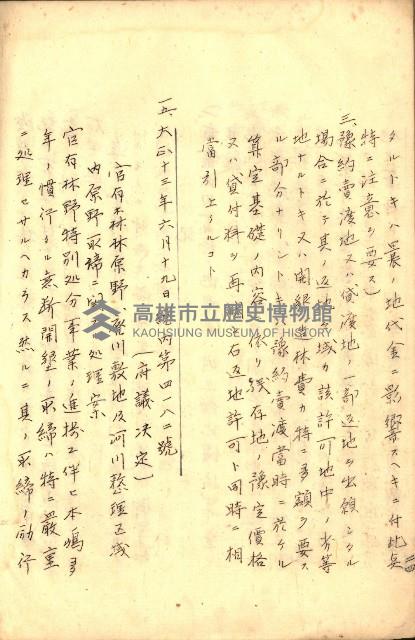 タルトキハ曩ノ地代金ニ影響スヘキニ付此点
特ニ注意ヲ要ス）
三、豫約賣渡地又ハ貸渡地ノ一部返地ヲ出願シタル
場合ニ於テ其ノ返地区域カ該許可地中ノ劣等
地ナルトキ又ハ開墾造林費カ特ニ多額ヲ要ス
ル部分ナリシトキハ豫約賣渡當時ニ於ケル
算定基礎ノ内容ニ依リ残存地ノ豫定價格
又ハ貸付料ヲ再 シ右返地許可ト同時ニ相
當引上クルコト
一五、大正十三年六月十九日 内第四一八二號
（府議決定）
官有森林原野、 川敷地及河川整理区域
内原野取締ニ 処理案
官有林野特別処分事業ノ進捗ニ伴ヒ本嶋多
年ノ慣行タル無断開墾ノ取締ハ特ニ嚴重
ニ処理セサルヘカラス然ルニ其ノ取締ノ励行
高雄市立歷史博物館
KAOHSIUNG MUSEUM OF HISTORY